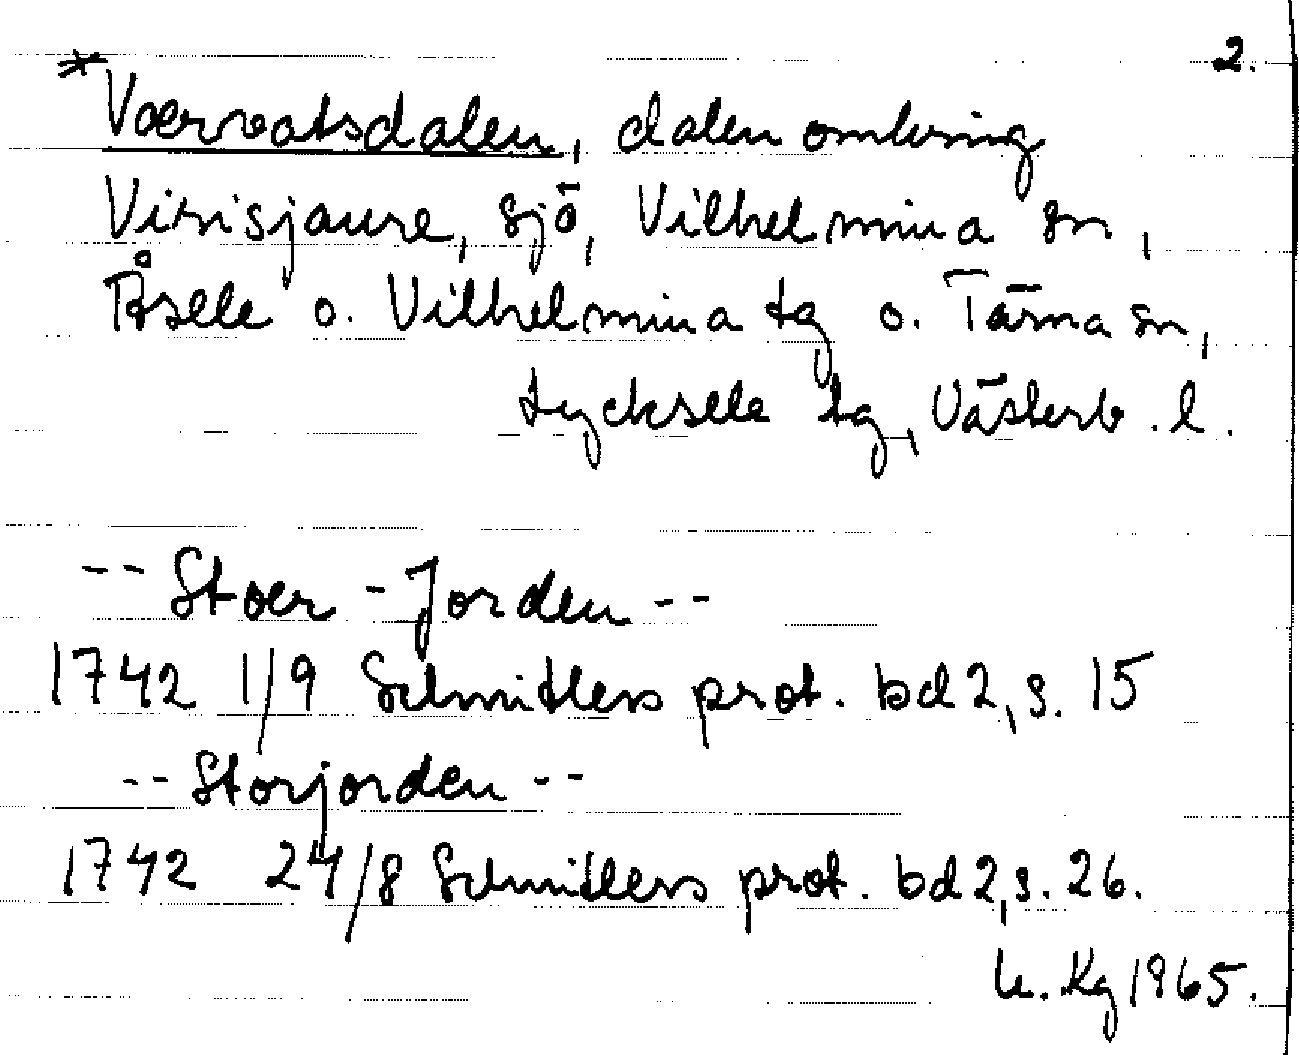 2.
*Værvatsdalen, dalen omkring
Virisjaure, sjö, Vilhelmina sn,
Åsele o. Vilhelmina tg o. Tärna sn,
Lycksele tg, Västerb. l.
-- Stoer - Jorden --
1742 1/9 Schnitlers prot. bd 2, s. 15
-- Storjorden --
1742 24/8 Schnitlers prot. bd 2, s. 26.
Kg 1965.